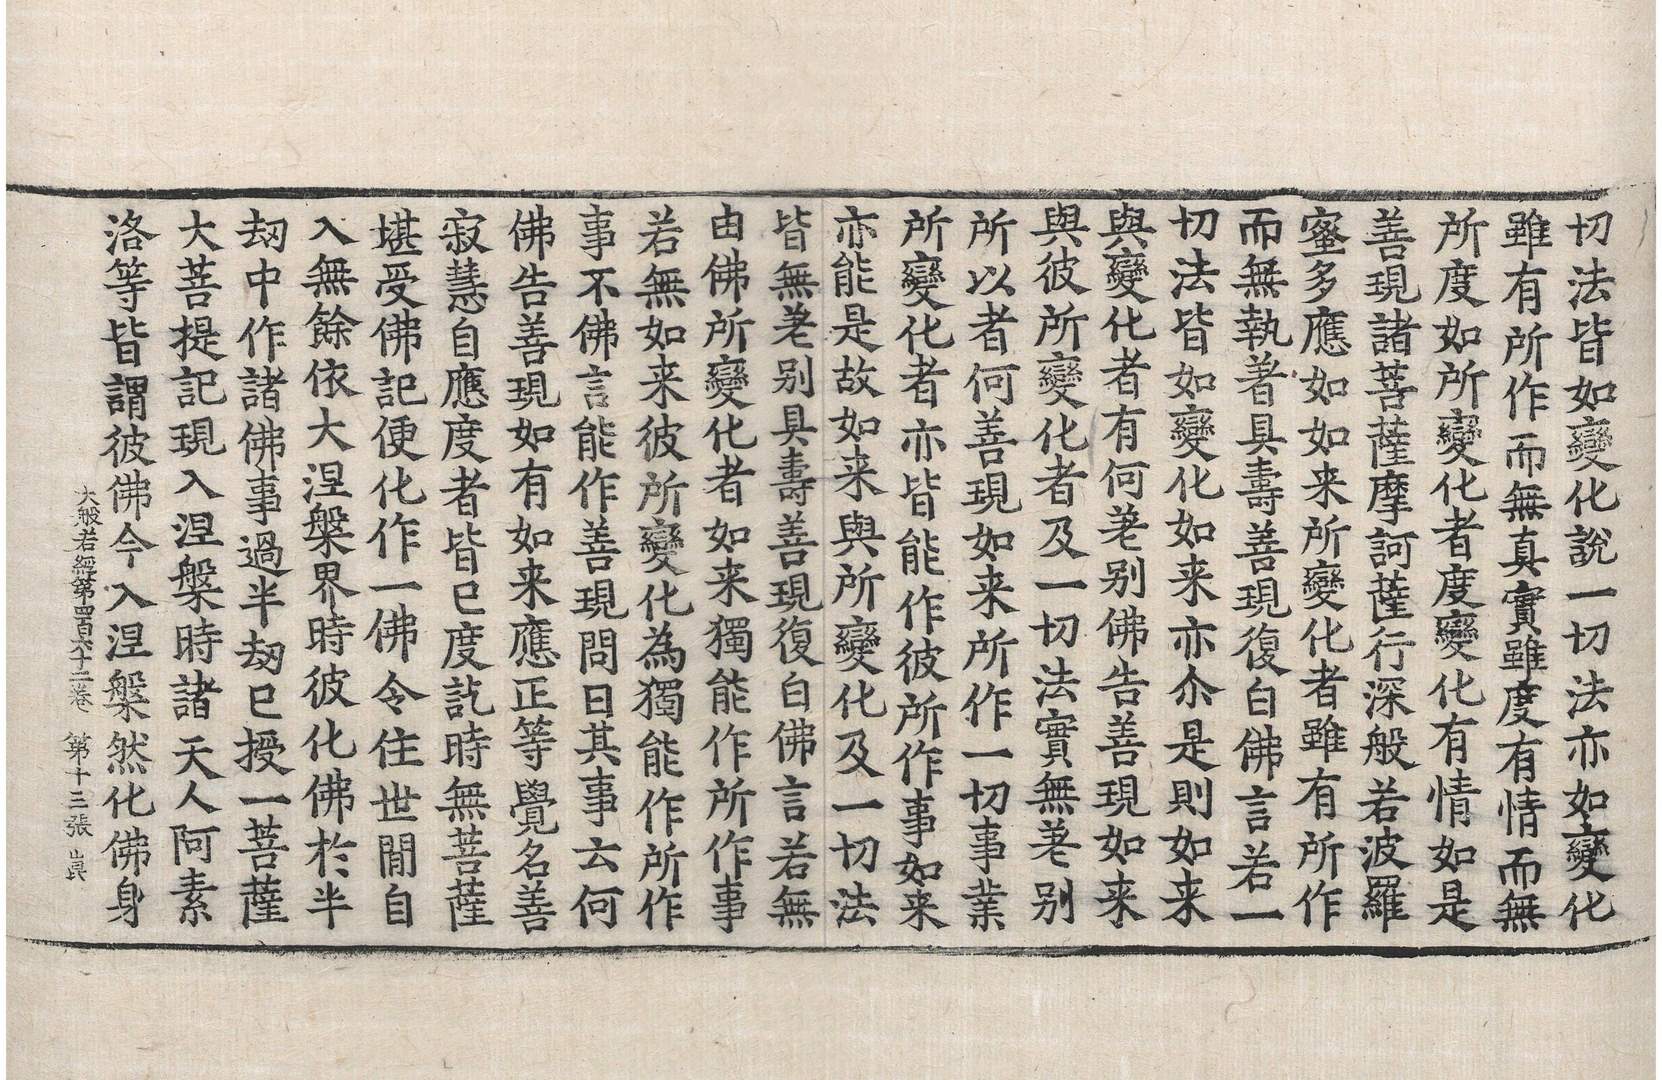 切法皆如變化說一切法亦如變化
雖有所作而無真實雖度有情而無
所度如所變化者度變化有情如是
善現諸菩薩摩訶薩行深般若波羅
蜜多應如如来所變化者雖有所作
而無執著具壽善現復白佛言若一
切法皆如變化如来亦尒是則如来
與變化者有何差别佛告善現如来
與彼所變化者及一切法實無差别
所以者何善現如来所作一切事業
所變化者亦皆能作彼所作事如来
亦能是故如来與所變化及一切法
皆無差别具壽善現復白佛言若無
由佛所變化者如来獨能作所作事
若無如来彼所變化為獨能作所作
事不佛言能作善現問曰其事云何
佛告善現如有如来應正等覺名善
寂慧自應度者皆已度訖時無菩薩
堪受佛記便化作一佛令住世間自
入無餘依大涅槃界時彼化佛於半
劫中作諸佛事過半劫已授一菩薩
大菩提記現入涅槃時諸天人阿素
洛等皆謂彼佛今入涅槃然化佛身
大般若經第四百六十二卷 第十三張